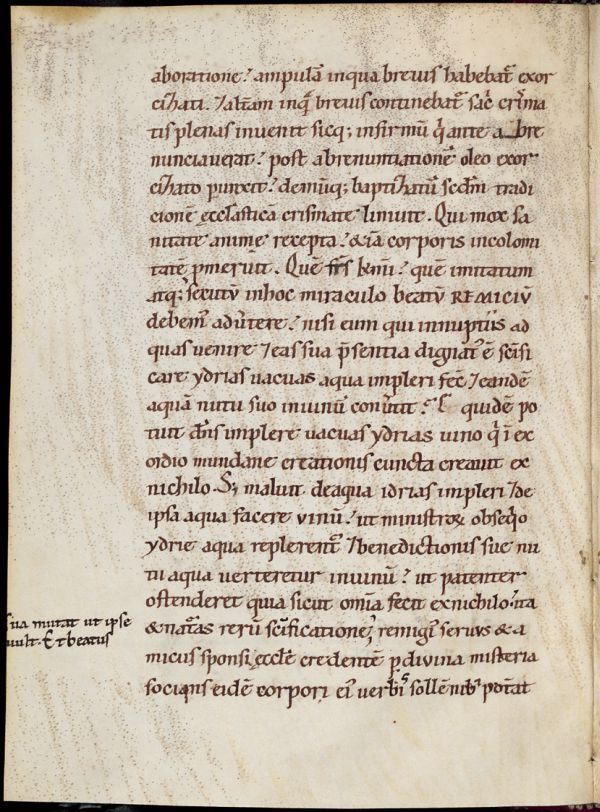 aboratione? ampulā inqua breuis habebat᷑ exor
cizati. ⁊altam inq̄ breuis continebat᷑ sac̄ crism̄a
tis plenas inuenit sicq; infirmū q̄ ante a bre
nunciauerat? post abrenuntiationē oleo exor
cizato punxit? demūq; baptizatū scdm̄ tradi
cionē ęcclasticā crismate liniuit. Qui mox sa
nitate anime recepta? &iā corporis incolomi
tatē pmeruit. Quē frs̄ kmi? quē imitatum
atq; secutū inhoc miraculo beatū REMICIŪ
debem᷒ aduertere? nisi eum qui innuptiis ad
quas uenire ⁊eas sua p̄sentia dignat᷒ ē sc̄isi
care ydrias uacuas aqua impleri fec̄ ⁊eandē
aquā nutu suo inuinū conuertit? quidē po
tuit dn̄s implere uacuas ydrias uino q̄ ī ex
ordio mundane creationis cuncta creauit ex
nichilo. S; maluit deaqua idrias impleri ⁊de
ipsa aqua facere vinū? ut ministroꝝ obseqio
ydrie aqua replerent᷑ ⁊benedictionis sue nu
tu aqua uerteretur inuinū? ut patenter
ostenderet quia sicut omīa fecit exnichilo? ita
&nat᷑as rerū sc̄ificatione, remigi᷒ seruus &a
micus sponsi ęccłe credentē p diuina misteria
socians eidē corpori ei᷒ verbi᷒ sollēnib᷒ potat
sua mutat ut ipse
uult. Et beatus